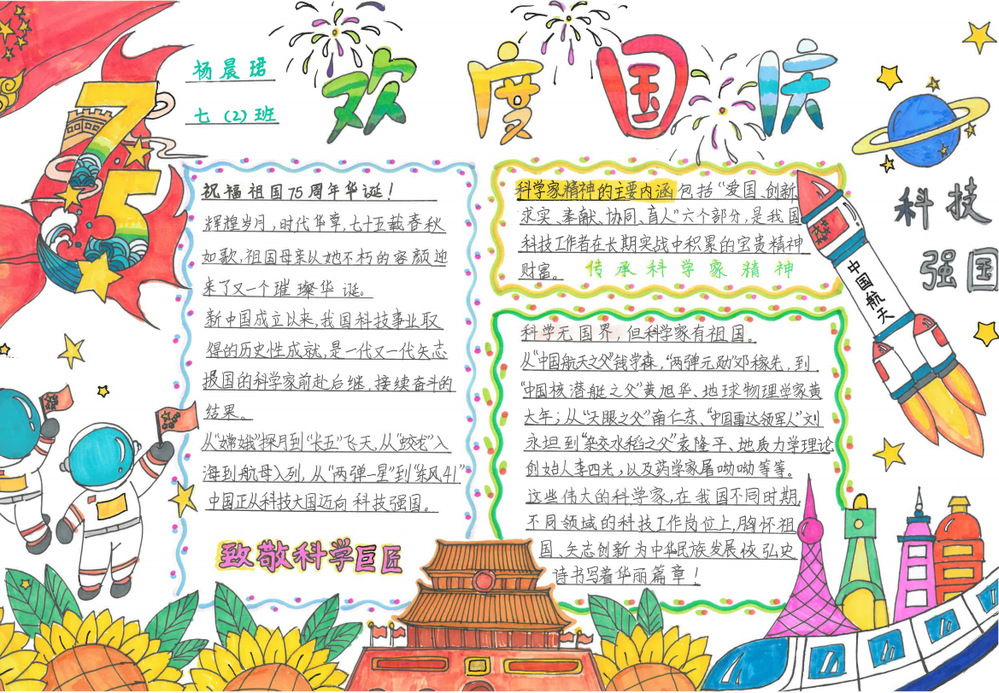 杨晨珺
七（2）班
欢度国庆
75
科技
强国
祝福祖国75周年华诞！
辉煌岁月，时代华章，七十五载春秋
如歌，祖国母亲从她不朽的容颜迎
来了又一个璀璨华诞。
新中国成立以来，我国科技事业取
得的历史性成就，是一代又一代矢志
报国的科学家前赴后继、接续奋斗的
结果。
从“嫦娥”探月到“长五”飞天，从“蛟龙”入
海到航母入列，从“两弹一星”到“东风41”
中国正从科技大国迈向科技强国。
致敬科学巨匠
科学家精神的主要内涵包括“爱国、创新、
求实、奉献、协同、育人”六个部分，是我国
科技工作者在长期实战中积累的宝贵精神
财富。 传承科学家精神
中国航天
科学无国界，但科学家有祖国。
从“中国航天之父”钱学森，“两弹元勋”邓稼先，到
“中国核潜艇之父”黄旭华、地球物理学家黄
大年；从“天眼之父”南仁东、“中国雷达领军人”刘
永坦到“杂交水稻之父”袁隆平、地质力学理论
创始人李四光，以及药学家屠呦呦等等。
这些伟大的科学家，在我国不同时期，
不同领域的科技工作岗位上，胸怀祖
国、矢志创新为中华民族发展恢弘史
诗书写着华丽篇章！